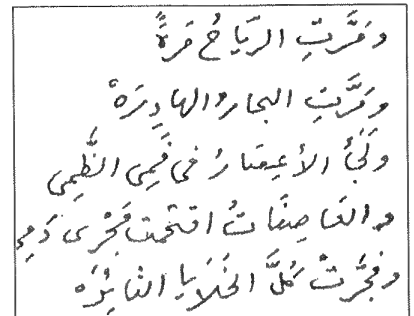 وَمَرَّتِ الرِّيَاحُ مَرَةً
ومَرَّتِ البحار والهادِرَهْ
الأعِصَارُ في فَمِي الظَّمِي
والعَاصِفَاتُ اقتَحمت مَجْرَى دَمِي
وفجَّرتْ كلَّ الخَلَايا الثائِرَه